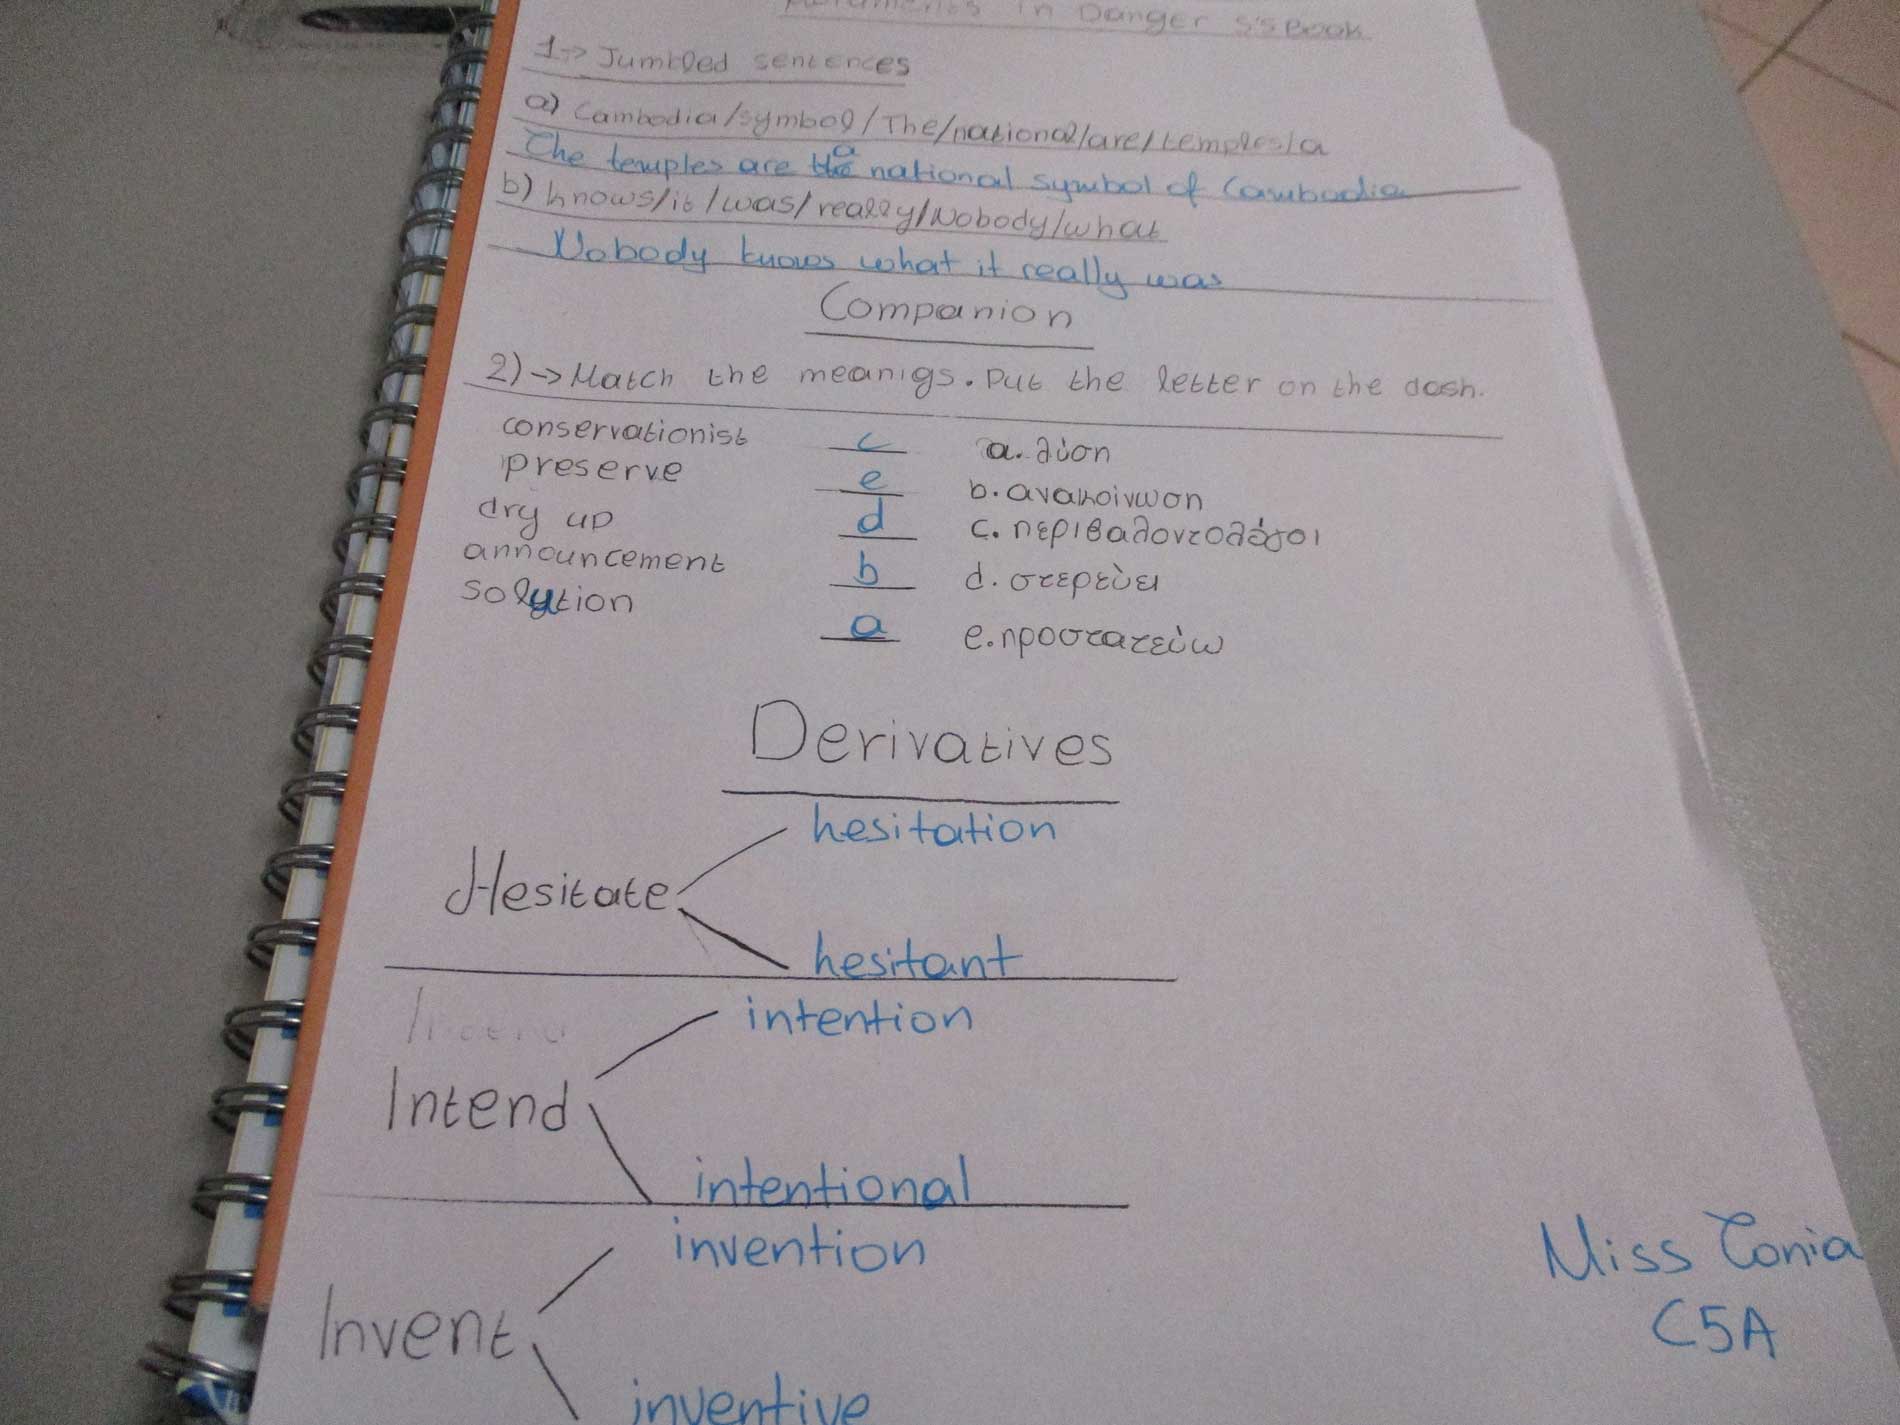 in Danger S'S Book
1-> Jumbled sentences
a) Cambodia/symbol/The/national/are/temples/a
The temples are a national symbol of Cambodia
b) knows/it/was/really/Nobody/what
Nobody knows what it really was
Companion
2)-> Match the meanigs. Put the letter on the dash.
conservationist c a. λύση
preserve e b. ανακοίνωση
dry up d c. περιβαλοντολόγοι
announcement b d. στερεύει
solution a e. προστατεύω
Derivatives
hesitation
Hesitate
hesitant
intention
Intend
intentional
invention
Invent
inventive
Miss Tonia
C5A